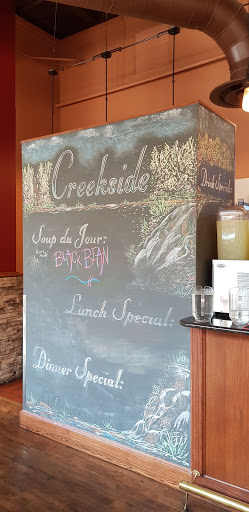 Creekside
Soup du Jour:
BLACK BEAN
Lunch Special:
Dinner Special:
Drink Special: